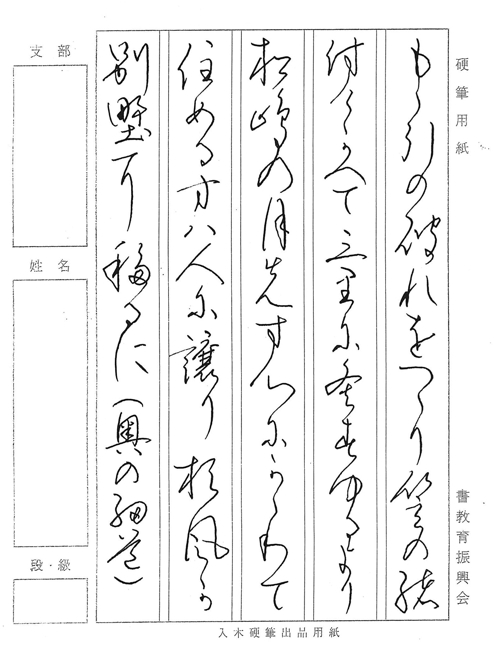 硬筆用紙
書教育振興会
もゝ引の破れをつゝり笠の緒
付かへて三里に灸すゆるより
松嶋の月先す心にかゝりて
住める方ハ人に譲り杉風か
別墅に移るに(奥の細道)
支部
姓名
段・級
入木硬筆出品用紙